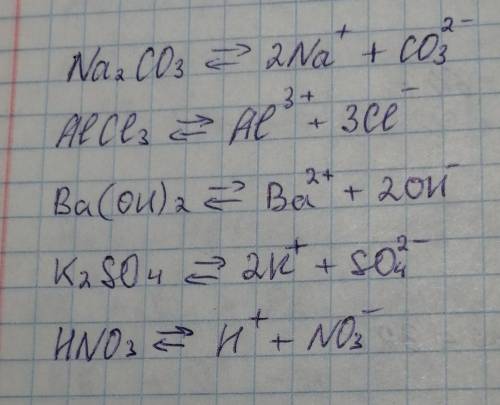 Na₂CO₃ ⇄ 2Na⁺ + CO₃²⁻
AlCl₃ ⇄ Al³⁺ + 3Cl⁻
Ba(OH)₂ ⇄ Ba²⁺ + 2OH⁻
K₂SO₄ ⇄ 2K⁺ + SO₄²⁻
HNO₃ ⇄ H⁺ + NO₃⁻